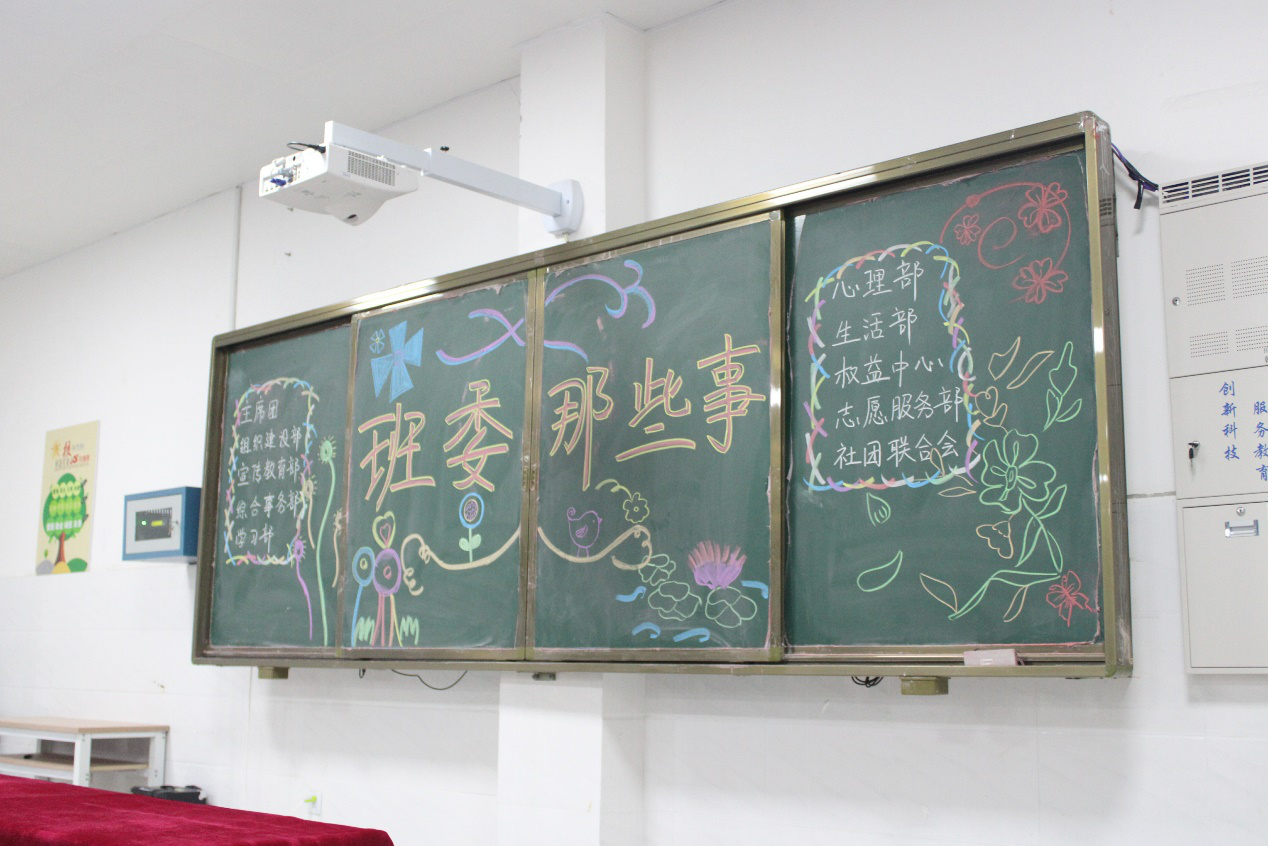 主席团
组织建设部
宣传教育部
综合事务部
学习部
班委那些事
心理部
生活部
权益中心
志愿服务部
社团联合会
创新科技
服务教育